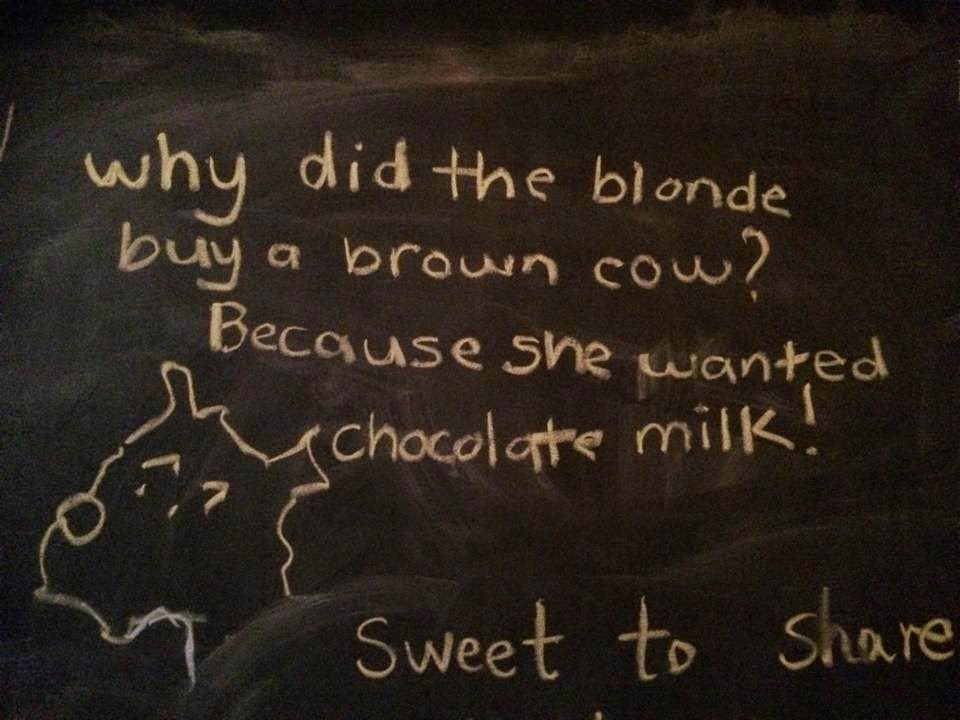 why did the blonde
buy a brown cow?
Because she wanted
chocolate milk!
Sweet to share